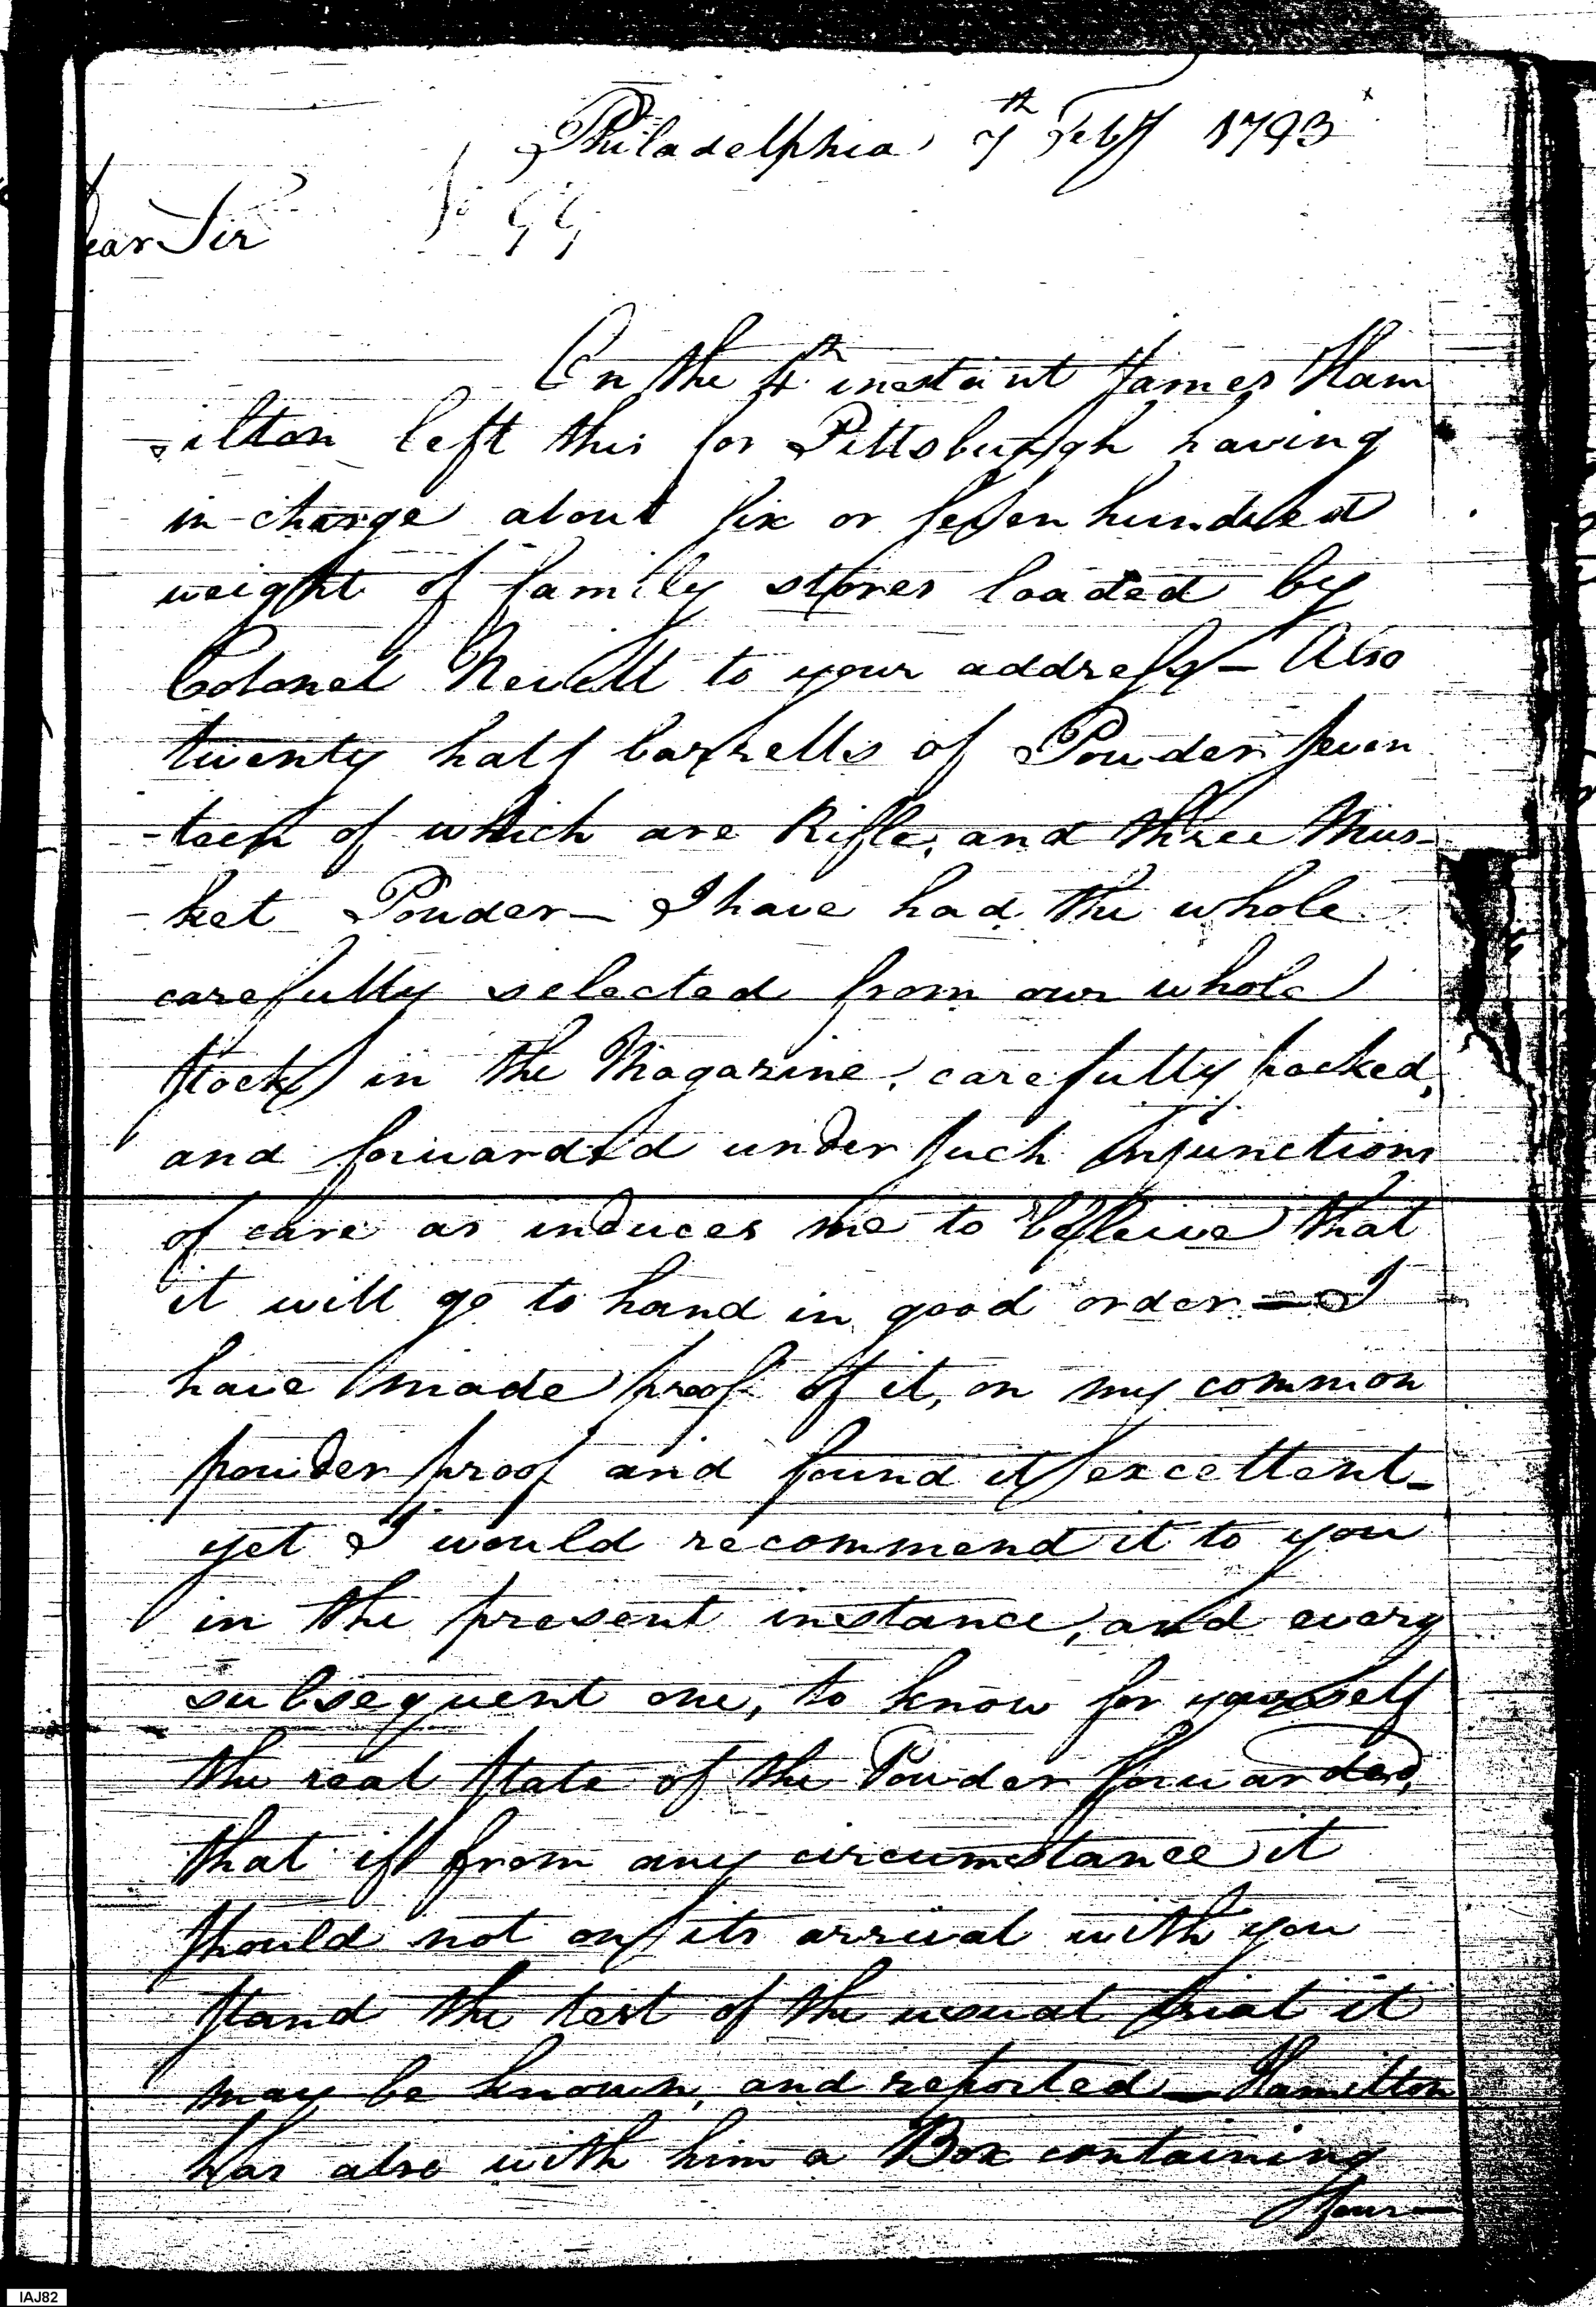 Philadelphia 7th Feby 1793
Dear Sir
On the 4th instant James Ham
-ilton left this for Pittsburgh having
in charge about six or seven hundred
weight of family stores loaded by
Colonel Nevill to your address — Also
twenty half barrells of Powder seven
-teen of which are Rifle, and three Mus-
-ket Powder — I have had the whole
carefully selected from our whole
stock in the Magazine, carefully packed,
and forwarded under such injunctions
of care as induces me to believe that
it will go to hand in good order — I
have made proof of it, on my common
powder proof and found it excellent —
yet I would recommend it to you
in the present instance, and every
subsequent one, to know for yourself
the real state of the Powder forwarded,
that if from any circumstance it
should not on its arrival with you
stand the test of the usual trial it
may be known, and reported — Hamilton
has also with him a Box containing
four —
IAJ82